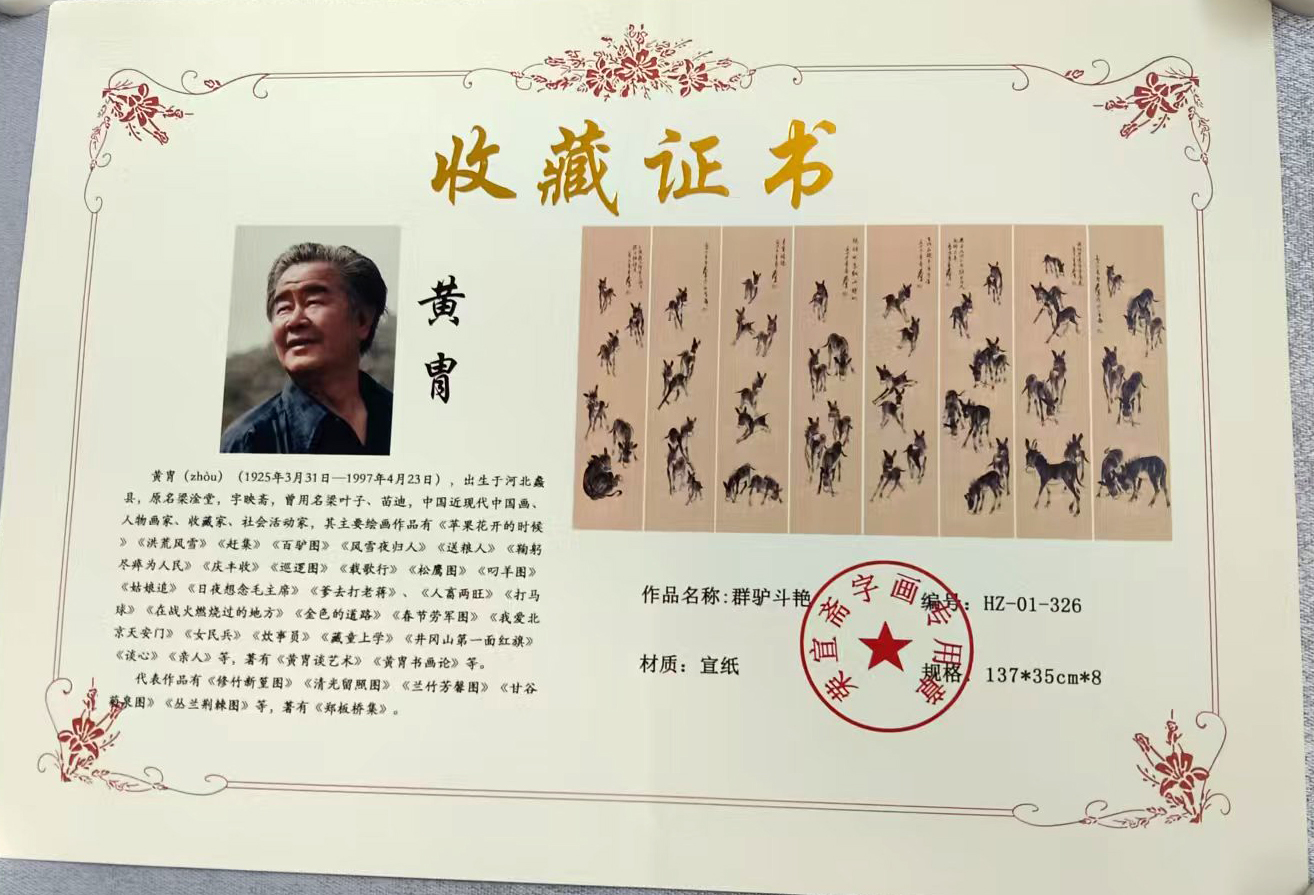 收藏证书
黄胄
黄胄（zhòu）（1925年3月31日—1997年4月23日），出生于河北蠡
县，原名梁淦堂，字映斋，曾用名梁叶子、苗迪，中国近现代中国画、
人物画家、收藏家、社会活动家，其主要绘画作品有《苹果花开的时候
》《洪荒风雪》《赶集》《百驴图》《风雪夜归人》《送粮人》《鞠躬
尽瘁为人民》《庆丰收》《巡逻图》《载歌行》《松鹰图》《叼羊图》
《姑娘追》《日夜想念毛主席》《爹去打老蒋》、《人畜两旺》《打马
球》《在战火燃烧过的地方》《金色的道路》《春节劳军图》《我爱北
京天安门》《女民兵》《炊事员》《藏童上学》《井冈山第一面红旗》
《谈心》《亲人》等，著有《黄胄谈艺术》《黄胄书画论》等。
代表作品有《修竹新篁图》《清光留照图》《兰竹芳馨图》《甘谷
菊泉图》《丛兰荆棘图》等，著有《郑板桥集》。
作品名称:群驴斗艳
编号: HZ-01-326
材质：宣纸
规格: 137*35cm*8
荣宜斋字画专用章